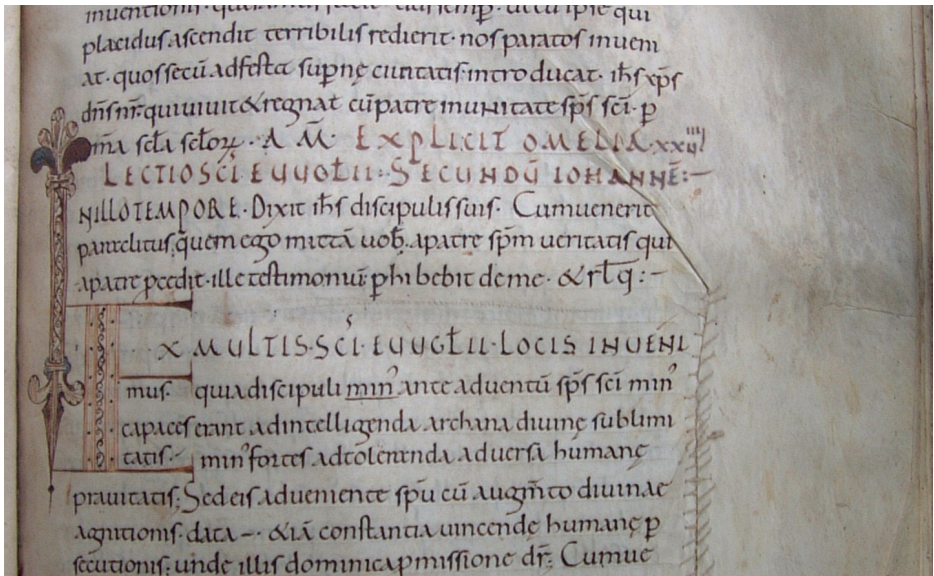 placidus ascendit terribilis redierit · nos paratos inveni
at · quos secū ad festa supnę civitatis introducat · ihs xps
dn̄s nr̄ · qui vivit & regnat cū patre in unitate sp̄s sc̄i · p
om̄a scl̄a scl̄oꝝ · A M̄ · EXPLICIT OMELIA · xxiiii
LECTIO SC̄I EUUGLII · SECUNDŪ IOHANNĒ :–
IN ILLO TEMPORE · Dixit ih̄s discipulis suis · Cum venerit
paraclitus, quem ego mittā vob̄ · a patre sp̄m veritatis qui
a patre pcedit · ille testimoniū phibebit de me · & rl̄q :–
EX MULTIS · SC̄I · EUUGLII · LOCIS INVENI
mus · quia discipuli min᾽ ante adventū sp̄s sc̄i min᾽
capaces erant ad intelligenda archana divinę sublimi
tatis · min᾽ fortes ad toleranda adversa humanę
pravitatis ; Sed eis adveniente sp̄u cū augm̄to divinae
agnitionis · data – · & iā constantia vincendę humanę p
secutionis ; unde illis dominica pmissione dr̄ ; Cum ve